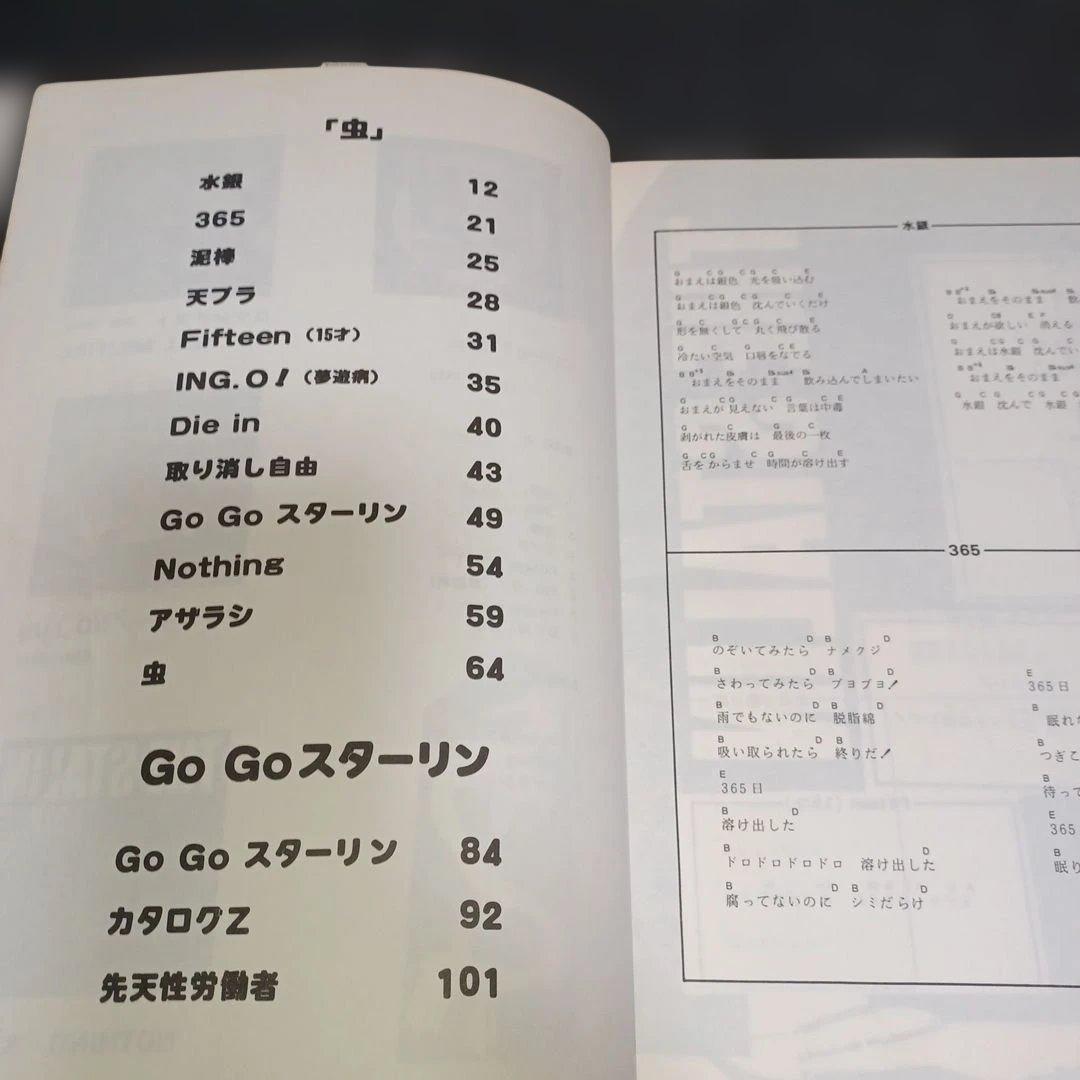 「虫」
水銀 12
365 21
泥棒 25
天プラ 28
Fifteen（15才） 31
ING.O!（夢遊病） 35
Die in 40
取り消し自由 43
Go Go スターリン 49
Nothing 54
アザラシ 59
虫 64
Go Goスターリン
Go Go スターリン 84
カタログZ 92
先天性労働者 101
水銀
G CG CG C E
おまえは銀色 光を吸い込む
G CG CG C E
おまえは銀色 沈んでいくだけ
G C GCG C E
形を無くして 丸く飛び散る
G C G C E
冷たい空気 口唇をなでる
おまえをそのまま 飲み込んでしまいたい
G CG G C E
おまえが見えない 言葉は中毒
G C G C
剥がれた皮膚は 最後の一枚
G CG C G C E
舌をからませ 時間が溶け出す
おまえをそのまま
おまえが欲しい 消える
おまえは水銀 沈んでい
おまえをそのまま
水銀 沈んで 水銀
365
B D B D
のぞいてみたら ナメクジ
B D B D
さわってみたら ブヨブヨ!
B D B D
雨でもないのに 脱脂綿
B D B
吸い取られたら 終りだ!
E
365日
B D
溶け出した
B D
ドロドロドロドロ 溶け出した
B D B D
腐ってないのに シミだらけ
E
365日
B
眠れ
B
つぎこ
B
待って
E
365
B
眠り